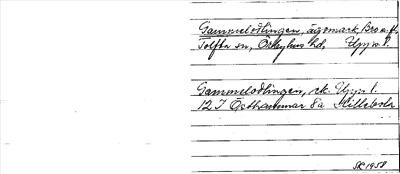 Gammelodlingen, ägomark, Bro
Tolfta sn, Örbyhus hd, Upps. l.
Gammelodlingen, ek. Upps l.
12 I Östhammar 8a Hillebola
SR 1958